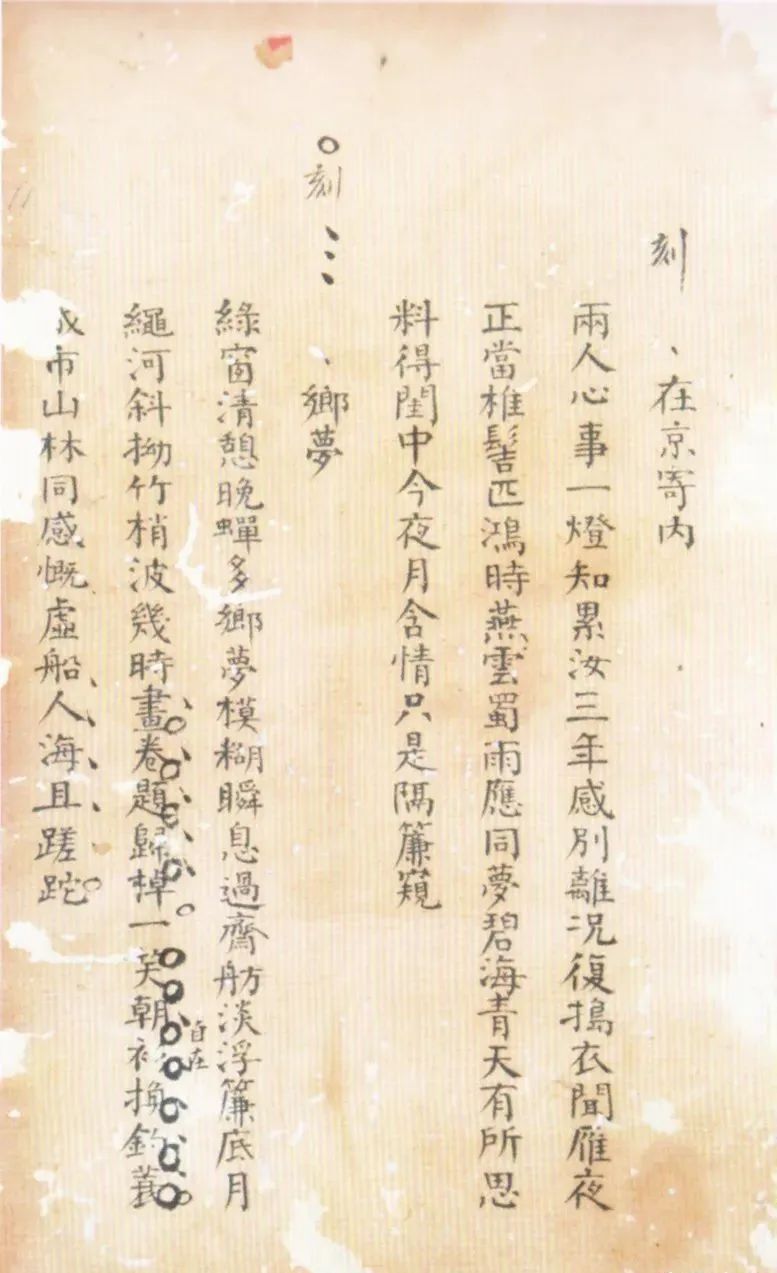 刻
在京寄內
兩人心事一燈知累汝三年感別離況復搗衣聞雁夜
正當椎髻匹鴻時燕雲蜀雨應同夢碧海青天有所思
料得閨中今夜月含情只是隔簾窺
刻
鄉夢
綠窗清憩晚蟬多鄉夢模糊瞬息過齋舫淡浮簾底月
自在
繩河斜拗竹梢波幾時畫卷題歸棹一笑朝衫換釣蓑
市山林同感慨虛船人海且蹉跎